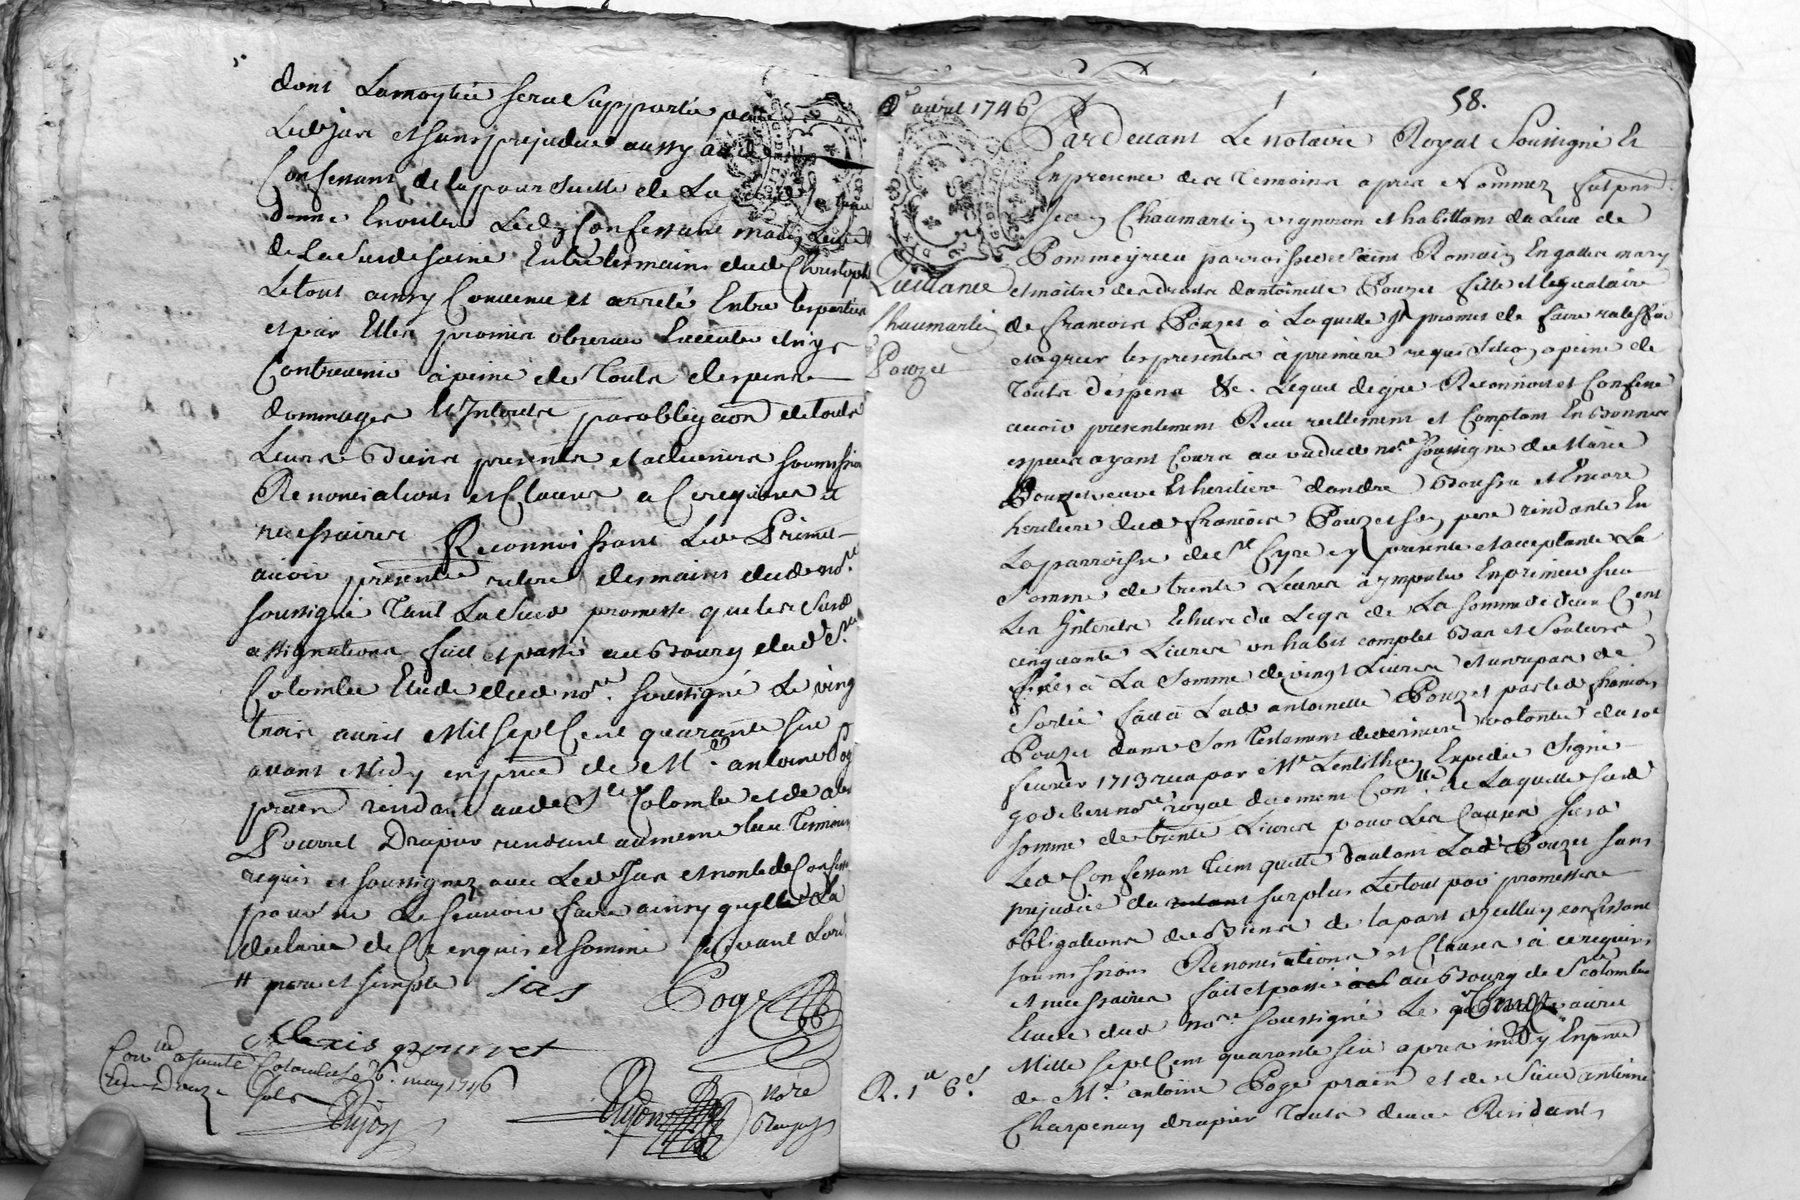 dont Lamoytié sera Supportée par
Led Jas et sans prejudice aussy aud
Confessant de la poursuitte de La
donne Enoutre Led Confessant
de La Susd Entre les mains dud Christophle
Le tout ainsy Convenu et arreté Entre les parties
et par Elles promis observer
Contrevenir à peine de Touts despens
dommages Et Interets par obligaon de touts
Leurs Biens presents et advenirs soumission
Renonciations et Clauses a Ce requises et
necessaires Reconnoissant Led
avoir presentt retiré des mains dud nore
soussigné Tant La Susd promesse que les Susd
assignations fait et passé au Bourg dud Ste
Colombe Etude dud nore soussigné Le vingt
trois avril Mil sept Cent quarante six
avant Midy en pnce de Me antoine Pog
praen residant aud Ste Colombe et de alex
Pourret Drapier residant au meme lieu Temoins
requis et soussignez avec Led Jas et non led Confess
pour ne le scavoir faire ainsy quylle la
declaré de Ce enquis et sommé suivant Lord
# pure et simple jas Poge
Alexis pourret
Con lé a sainte Colombe le 6. may 1746
Reçu Douze sols
Dujon
Dujon nore Royal
58.
avril 1746
Quittance
Chaumartin
Pouzet
Pardevant Le notaire Royal Soussigné Et
En presence des Temoins apres Nommez fut pnt
Jean Chaumartin vigneron et habittant du Lieu de
Pommeyrieu parroisse de Saint Romain En gallee mary
et maitre des droits dantoinette Pouzet fille et legataire
de francois Pouzet à Laquelle Jl promet de faire ratiffier
et agreer les presentes à premiere requisition a peine de
Touts despens &c. Lequel de gré Reconnoit et Confesse
avoir presentement Receu reellement et Comptant En Bonnes
especes ayant Cours au vu dud nore soussigné de Marie
Pouzet veuve Et heritiere dandré Bonson et Encore
heritiere dud francois Pouzet son pere residante En
La parroisse de St Cyr cy presente et acceptante La
Somme de trente Livres à ymputer En premier sur
Les Interets Echus du Legs de La somme de deux Cent
cinquante Livres un habit complet Bas et Souliers
fixés à La Somme de vingt Livres et un repas de
Sortie fait à Lad antoinette Pouzet par led francois
Pouzet dans Son Testament de derniere volonté du 10e
fevrier 1713 recu par Me Lentilhon Expedié Signé
godebert nore royal duement Conllé de Laquelle susd
somme de trente Livres pour Les Causes susd
Led Confessant Tient quitte dautant Lad Pouzet sans
prejudice du surplus Le tout par promesses
obligations de Biens de la part dycelluy confessant
soumissions Renonciations et Clauses à ce requises
et necessaires fait et passé au Bourg de Ste Colombe
Etude dud nore soussigné Le avril
Mille sept Cent quarante six apres midy En pnce
de Me. antoine Poge praen et de Sieur antoine
Charpenay drapier Touts deux Residants
R. 1# 6s.